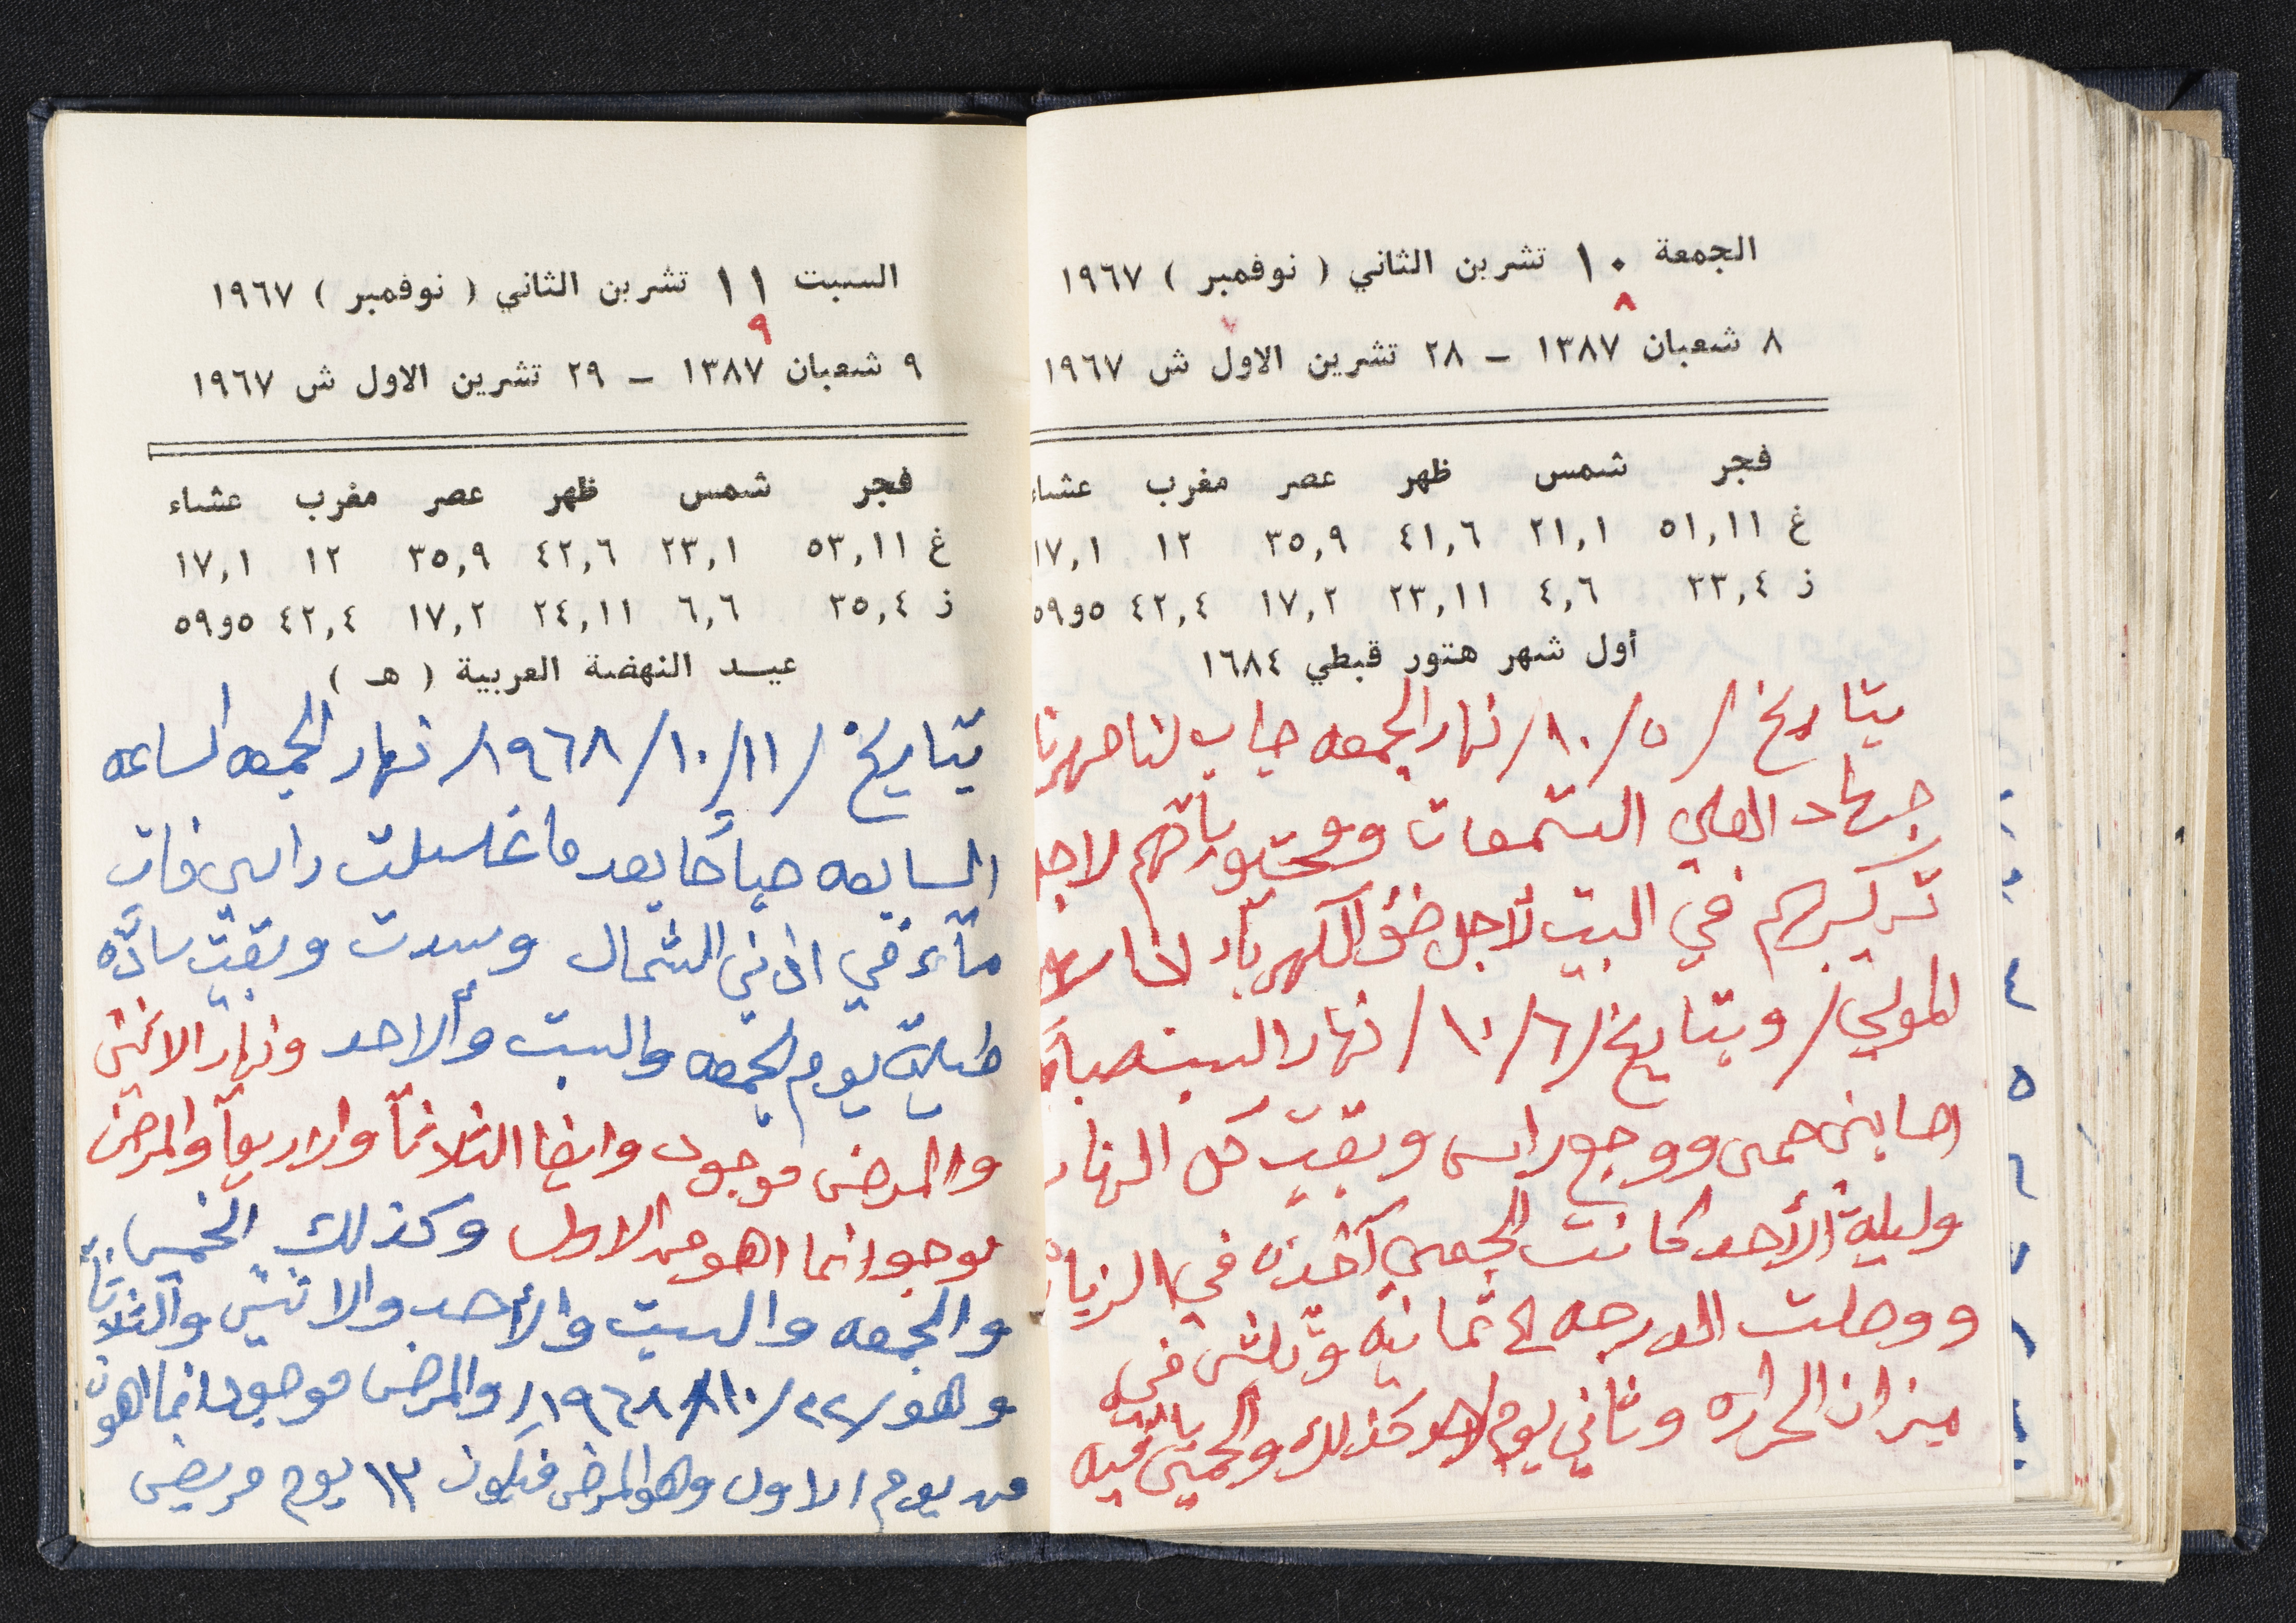 الجمعة ١٠ تشرين الثاني ( نوفمبر ) ١٩٦٧
٨
٧
٨ شعبان ١٣٨٧ – ٢٨ تشرين الاول ش ١٩٦٧
فجر شمس ظهر عصر مغرب عشاء
غ ٥١,١١ ٢١,١ ٤١,٦ ٣٥,٩ ١٢ ١٧,١
ز ٣٣,٤ ٤,٦ ٢٣,١١ ١٧,٢ ٤٢,٤ ٥و٥٩
أول شهر هتور قبطي ١٦٨٤
بتاريخ /٥/١٠/ نهار الجمعه جاب لنا صهرنا
جهاد العلي الشمعات ومحتوياتهم لاجل
تركيبهم في البيت لأجل ضؤ الكهرباء
المولي/ وبتاريخ /٦/١٠/ نهار السبت صباحاً
اصابني حمى ووجع راسي وبقيت كل النهار
وليلة الأحد كانت الحمى آخذه في الزياد
ووصلت الدرجه ٣ ثمانية وثلاثين في
ميزان الحراره وثاني يوم الاحد كذلك والحمى باقيه
السبت ١١ تشرين الثاني ( نوفمبر ) ١٩٦٧
٩
٩ شعبان ١٣٨٧ – ٢٩ تشرين الاول ش ١٩٦٧
فجر شمس ظهر عصر مغرب عشاء
غ ٥٣,١١ ٢٣,١ ٤٢,٦ ٣٥,٩ ١٢ ١٧,١
ز ٣٥,٤ ٦,٦ ٢٤,١١ ١٧,٢ ٤٢,٤ ٥و٥٩
عيــد النهضة العربية ( هـ )
بتاريخ /١١/١٠/١٩٦٨/ نهار الجمعه الساعه
السابعه صباحًا بعد ما غسلت راسي فات
مآء في اذني الشمال وسدت وبقيت سادّه
طيلة يوم الجمعه والسبت وألاحد ونهار الاثنين
والمرض موجود وايضا الثلاثآ والاربعآ والمرض
موجود انما اهون من الاول وكذلك الخميس
والجمعه والسبت والأحد والاثنين والثلاثآ
وهو /٢٢/١٠/١٩٦٨/ والمرض موجود انما اهون
من يوم الاول وهو المرض فيكون ١٣ يوم مريض
٤
٥
٦